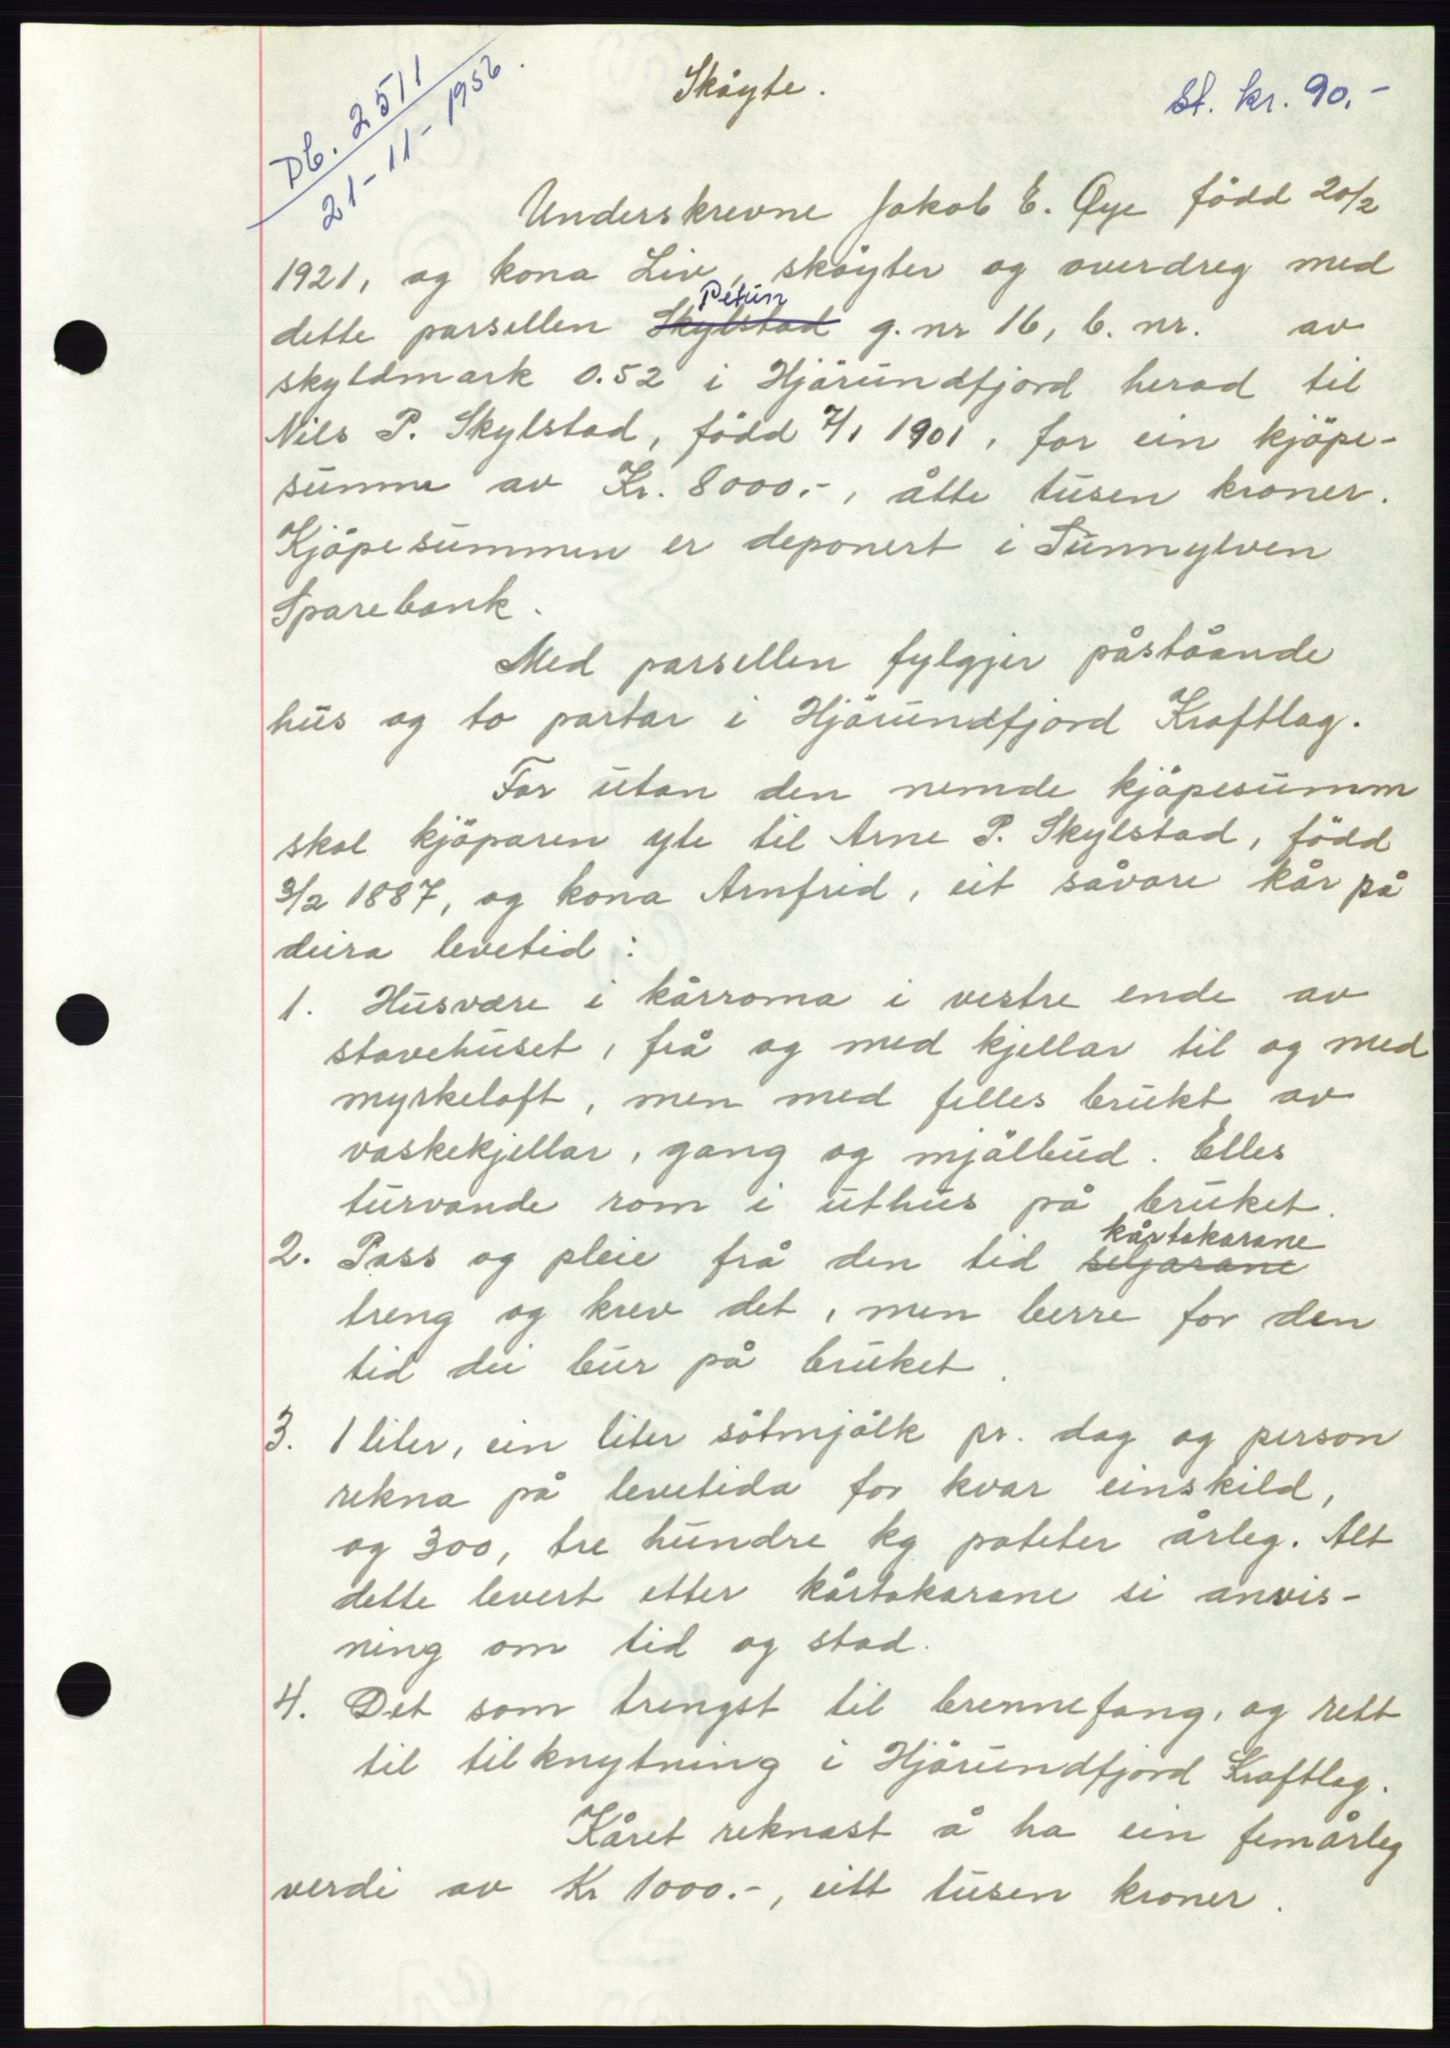 Db. 2511
21-11-1956.
Sköyte.
St. kr. 90.-
Underskrevne Jakob E. Øye född 20/2
1921, og kona Liv, sköyter og overdreg med
Petün
dette parsellen Skylstad g.nr 16, b.nr. av
skyldmark 0.52 i Hjöründfjord herad til
Nils P. Skylstad, född 7/1 1901, for ein kjöpe-
summe av Kr. 8000.-, åtte tüsen kroner.
Kjöpesummen er deponert i Sünnylven
Sparebank.
Med parsellen fylgjer påståande
hüs og to partar i Hjöründfjord Kraftlag.
For ütan den nemde kjöpesümm
skal kjöparen yte til Arne P. Skylstad, född
3/2 1887, og kona Arnfrid, eit såvore kår på
deira levetid:
1. Hüsvære i kårroma i vestre ende av
stovehüset, frå og med kjellar til og med
myrkeloft, men med felles brükt av
vaskekjellar, gang og mjölbud. Elles
türvande rom i üthüs på brüket.
kårtakarane
2. Pass og pleie frå den tid seljarane
treng og krev det, men berre for den
tid dei bür på brüket.
3. 1 liter, ein liter sötmjölk pr. dag og person
rekna på levetida for kvar einskild,
og 300, tre hündre kg poteter årleg. Alt
dette levert etter kårtakarane si anvis-
ning om tid og stad.
4. Det som trengst til brennefang, og rett
til tilknytning i Hjöründfjord Kraftlag.
Kåret reknast å ha ein femårleg
verdi av Kr 1000.-, eitt tüsen kroner.